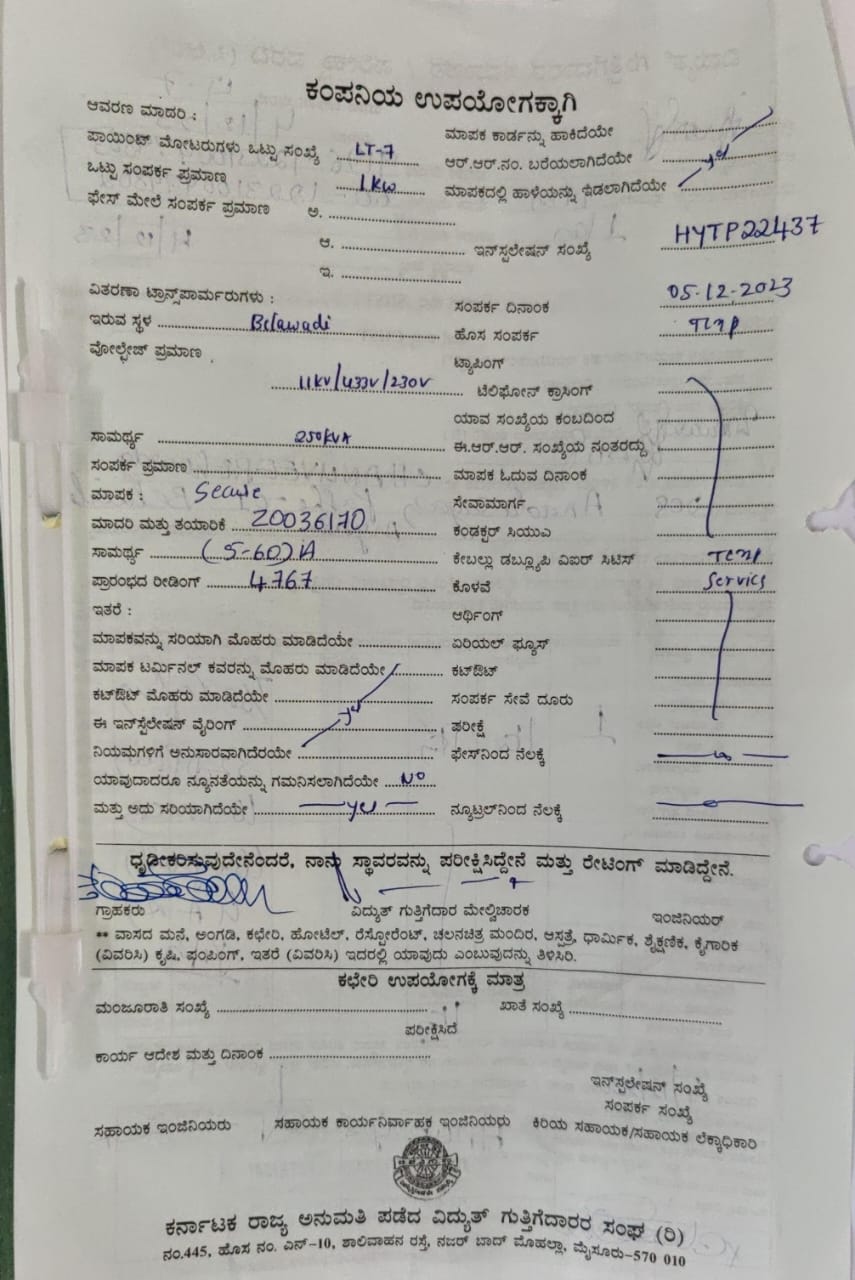 ಕಂಪನಿಯ ಉಪಯೋಗಕ್ಕಾಗಿ
ಆವರಣ ಮಾದರಿ :
ಮಾಪಕ ಕಾರ್ಡನ್ನು ಹಾಕಿದೆಯೇ
ಪಾಯಿಂಟ್ ಮೋಟರುಗಳು ಒಟ್ಟು ಸಂಖ್ಯೆ LT-7
ಆರ್.ಆರ್.ನಂ. ಬರೆಯಲಾಗಿದೆಯೇ yes
ಒಟ್ಟು ಸಂಪರ್ಕ ಪ್ರಮಾಣ 1kw
ಮಾಪಕದಲ್ಲಿ ಹಾಳೆಯನ್ನು ಇಡಲಾಗಿದೆಯೇ
ಫೇಸ್ ಮೇಲೆ ಸಂಪರ್ಕ ಪ್ರಮಾಣ ಅ.
ಆ. ಇನ್‌ಸ್ಟಲೇಷನ್ ಸಂಖ್ಯೆ HYTP22437
ಇ.
ವಿತರಣಾ ಟ್ರಾನ್ಸ್‌ಪಾರ್ಮರುಗಳು :
ಸಂಪರ್ಕ ದಿನಾಂಕ 05-12-2023
ಇರುವ ಸ್ಥಳ Belawadi
ಹೊಸ ಸಂಪರ್ಕ Temp
ವೋಲ್ಟೇಜ್ ಪ್ರಮಾಣ
ಟ್ಯಾಪಿಂಗ್
11kv/433v/230v ಟೆಲಿಫೋನ್ ಕ್ರಾಸಿಂಗ್
ಯಾವ ಸಂಖ್ಯೆಯ ಕಂಬದಿಂದ
ಸಾಮರ್ಥ್ಯ 250kVA
ಈ.ಆರ್.ಆರ್. ಸಂಖ್ಯೆಯ ನಂತರದ್ದು
ಸಂಪರ್ಕ ಪ್ರಮಾಣ
ಮಾಪಕ ಓದುವ ದಿನಾಂಕ
ಮಾಪಕ : Secure
ಸೇವಾಮಾರ್ಗ
ಮಾದರಿ ಮತ್ತು ತಯಾರಿಕೆ 20036170
ಕಂಡಕ್ಟರ್ ಸಿಯುಎ
ಸಾಮರ್ಥ್ಯ (5-60)A
ಕೇಬಲ್ಲು ಡಬ್ಲ್ಯೂಪಿ ವಿಐರ್ ಸಿಟಿಸ್ Temp
ಪ್ರಾರಂಭದ ರೀಡಿಂಗ್ 4767
ಕೊಳವೆ Service
ಇತರೆ :
ಆರ್ಥಿಂಗ್
ಮಾಪಕವನ್ನು ಸರಿಯಾಗಿ ಮೊಹರು ಮಾಡಿದೆಯೇ
ಏರಿಯಲ್ ಫ್ಯೂಸ್
ಮಾಪಕ ಟರ್ಮಿನಲ್ ಕವರನ್ನು ಮೊಹರು ಮಾಡಿದೆಯೇ
ಕಟ್‌ಔಟ್
ಕಟ್‌ಔಟ್ ಮೊಹರು ಮಾಡಿದೆಯೇ yes
ಸಂಪರ್ಕ ಸೇವೆ ದೂರು
ಈ ಇನ್‌ಸ್ಟಲೇಷನ್ ವೈರಿಂಗ್
ಪರೀಕ್ಷೆ
ನಿಯಮಗಳಿಗೆ ಅನುಸಾರವಾಗಿದೆರಯೇ
ಫೇಸ್‌ನಿಂದ ನೆಲಕ್ಕೆ
ಯಾವುದಾದರೂ ನ್ಯೂನತೆಯನ್ನು ಗಮನಿಸಲಾಗಿದೆಯೇ NO
ಮತ್ತು ಅದು ಸರಿಯಾಗಿದೆಯೇ yes
ನ್ಯೂಟ್ರಲ್‌ನಿಂದ ನೆಲಕ್ಕೆ
ಧೃಡೀಕರಿಸ್ತುವುದೇನೆಂದರೆ, ನಾನು ಸ್ಥಾವರವನ್ನು ಪರೀಕ್ಷಿಸಿದ್ದೇನೆ ಮತ್ತು ರೇಟಿಂಗ್ ಮಾಡಿದ್ದೇನೆ.
ಗ್ರಾಹಕರು ವಿದ್ಯುತ್ ಗುತ್ತಿಗೆದಾರ ಮೇಲ್ವಿಚಾರಕ ಇಂಜಿನಿಯರ್
** ವಾಸದ ಮನೆ, ಅಂಗಡಿ, ಕಛೇರಿ, ಹೋಟೆಲ್, ರೆಸ್ಟೋರೆಂಟ್, ಚಲನಚಿತ್ರ ಮಂದಿರ, ಆಸ್ಪತ್ರೆ, ಧಾರ್ಮಿಕ, ಶೈಕ್ಷಣಿಕ, ಕೈಗಾರಿಕ
(ವಿವರಿಸಿ) ಕೃಷಿ, ಪಂಪಿಂಗ್, ಇತರೆ (ವಿವರಿಸಿ) ಇದರಲ್ಲಿ ಯಾವುದು ಎಂಬುವುದನ್ನು ತಿಳಿಸಿರಿ.
ಕಛೇರಿ ಉಪಯೋಗಕ್ಕೆ ಮಾತ್ರ
ಮಂಜೂರಾತಿ ಸಂಖ್ಯೆ ಖಾತೆ ಸಂಖ್ಯೆ
ಪರೀಕ್ಷಿಸಿದೆ
ಕಾರ್ಯ ಆದೇಶ ಮತ್ತು ದಿನಾಂಕ
ಇನ್‌ಸ್ಟಲೇಷನ್ ಸಂಖ್ಯೆ
ಸಂಪರ್ಕ ಸಂಖ್ಯೆ
ಸಹಾಯಕ ಇಂಜಿನಿಯರು ಸಹಾಯಕ ಕಾರ್ಯನಿರ್ವಾಹಕ ಇಂಜಿನಿಯರು ಕಿರಿಯ ಸಹಾಯಕ/ಸಹಾಯಕ ಲೆಕ್ಕಾಧಿಕಾರಿ
ಕರ್ನಾಟಕ ರಾಜ್ಯ ಅನುಮತಿ ಪಡೆದ ವಿದ್ಯುತ್ ಗುತ್ತಿಗೆದಾರರ ಸಂಘ (ರಿ)
ನಂ.445, ಹೊಸ ನಂ. ಎನ್-10, ಶಾಲಿವಾಹನ ರಸ್ತೆ, ನಜರ್ ಬಾದ್ ಮೊಹಲ್ಲಾ, ಮೈಸೂರು-570 010